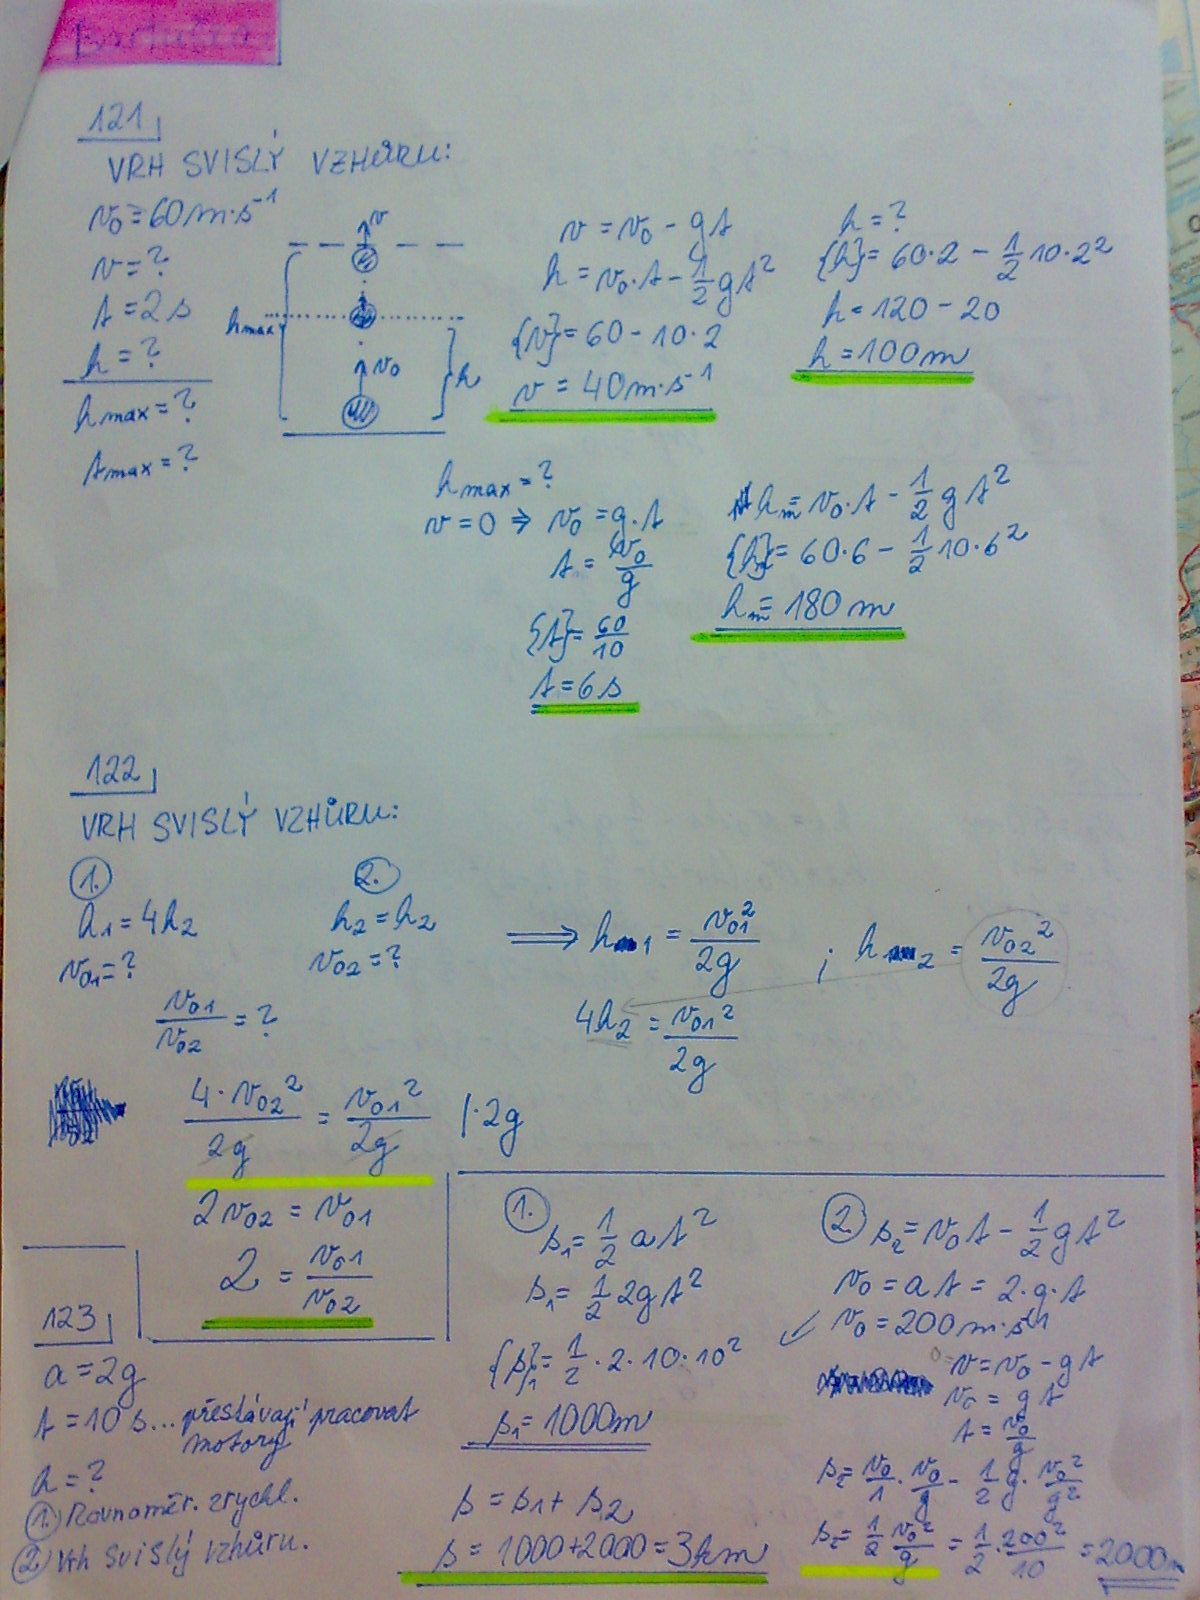 121
VRH SVISLÝ VZHŮRU:
v₀ = 60 m·s⁻¹
v = ?
t = 2 s
h = ?
hmax = ?
tmax = ?
v
hmax
v₀
h
v = v₀ - gt
h = v₀·t - 1/2 gt²
{v} = 60 - 10·2
v = 40 m·s⁻¹
h = ?
{h} = 60·2 - 1/2 10·2²
h = 120 - 20
h = 100 m
hmax = ?
v = 0 ⇒ v₀ = g·t
t = v₀/g
{t} = 60/10
t = 6 s
hm = v₀·t - 1/2 gt²
{hm} = 60·6 - 1/2 10·6²
hm = 180 m
122
VRH SVISLÝ VZHŮRU:
1.
h₁ = 4h₂
v₀₁ = ?
2.
h₂ = h₂
v₀₂ = ?
v₀₁/v₀₂ = ?
⟹ h₁ = v₀₁²/2g ; h₂ = v₀₂²/2g
4h₂ = v₀₁²/2g
4·v₀₂²/2g = v₀₁²/2g /·2g
2v₀₂ = v₀₁
2 = v₀₁/v₀₂
123
a = 2g
t = 10 s... přestávají pracovat
motory
h = ?
1. Rovnoměr. zrychl.
2. Vrh svislý vzhůru.
1.
s₁ = 1/2 at²
s₁ = 1/2 2gt²
{s}₁ = 1/2·2·10·10²
s₁ = 1000m
s = s₁ + s₂
s = 1000+2000 = 3km
2. s₂ = v₀t - 1/2 gt²
v₀ = at = 2·g·t
v₀ = 200 m·s⁻¹
0 = v = v₀ - gt
v₀ = gt
t = v₀/g
s₂ = v₀/1 · v₀/g - 1/2 g · v₀²/g²
s₂ = 1/2 v₀²/g = 1/2 · 200²/10 = 2000m